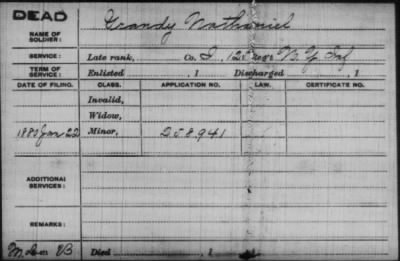 DEAD
NAME OF SOLDIER: Grandy Nathaniel
SERVICE: Late rank, Co. I, 12 Reg't N.Y. Inf
TERM OF SERVICE: Enlisted , 1 Discharged , 1
DATE OF FILING. CLASS. APPLICATION NO. LAW. CERTIFICATE NO.
Invalid,
Widow,
1880 Jan 22 Minor, 258941
ADDITIONAL SERVICES:
REMARKS:
Died , 1